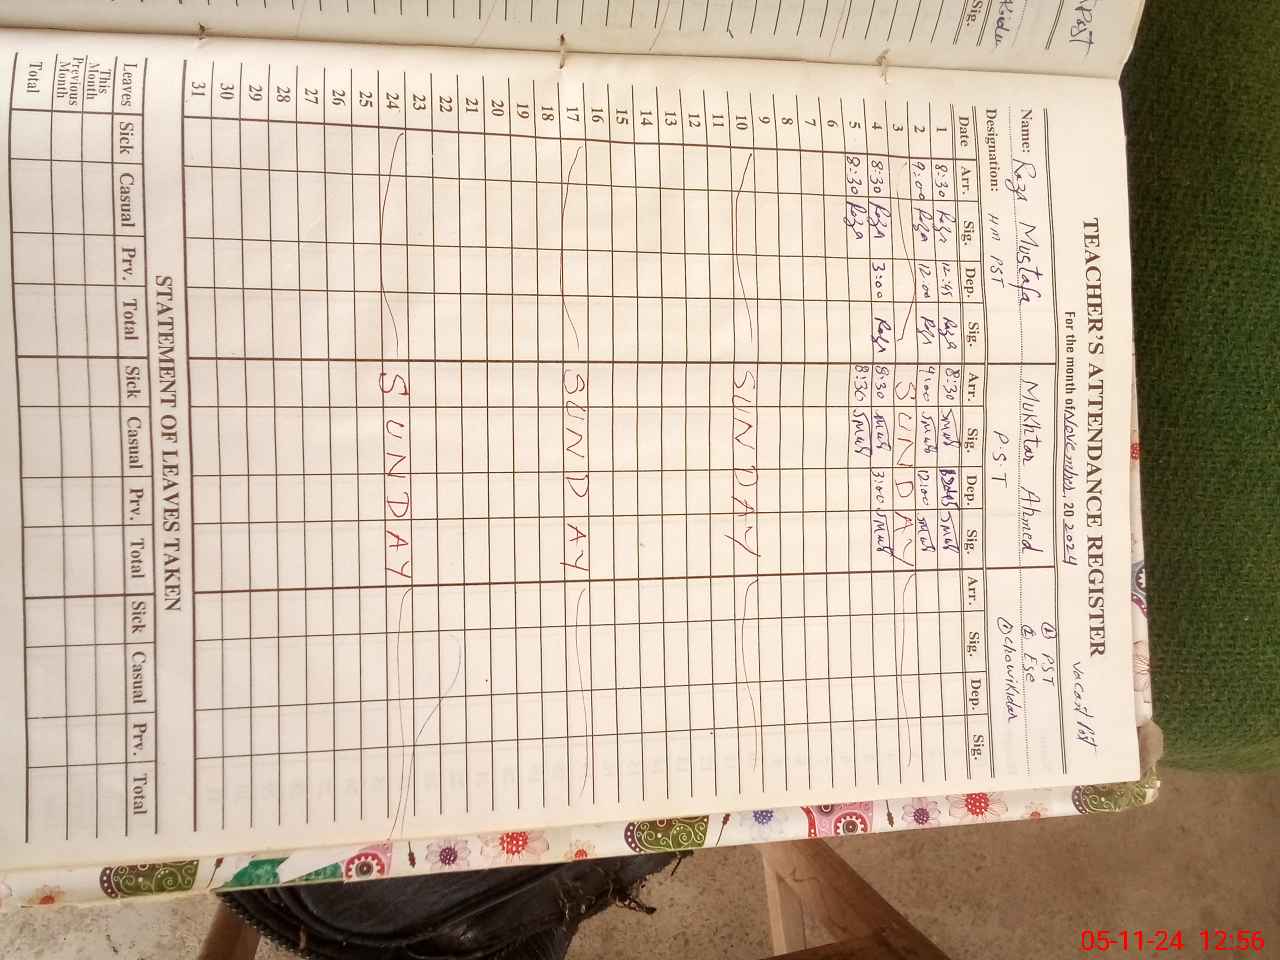 Post
Sig.
TEACHER'S ATTENDANCE REGISTER
For the month of November, 20 2024
Vacant Post
Name: Raza Mustafa Mukhtar Ahmed ① PST
② Ese
Designation: HM PST P.S.T ① Chowikidar
Date Arr. Sig. Dep. Sig. Arr. Sig. Dep. Sig. Arr. Sig. Dep. Sig.
1 8:30 Raza 12:45 Raza 8:30
2 9:00 Raza 12:00 Raza 9:00 12:00
3 SUNDAY
4 8:30 Raza 3:00 Raza 8:30 3:00
5 8:30 Raza 8:30
6
7
8
9
10 SUNDAY
11
12
13
14
15
16
17 SUNDAY
18
19
20
21
22
23
24 SUNDAY
25
26
27
28
29
30
31
STATEMENT OF LEAVES TAKEN
Leaves Sick Casual Prv. Total Sick Casual Prv. Total Sick Casual Prv. Total
This Month
Previous Month
Total
05-11-24 12:56